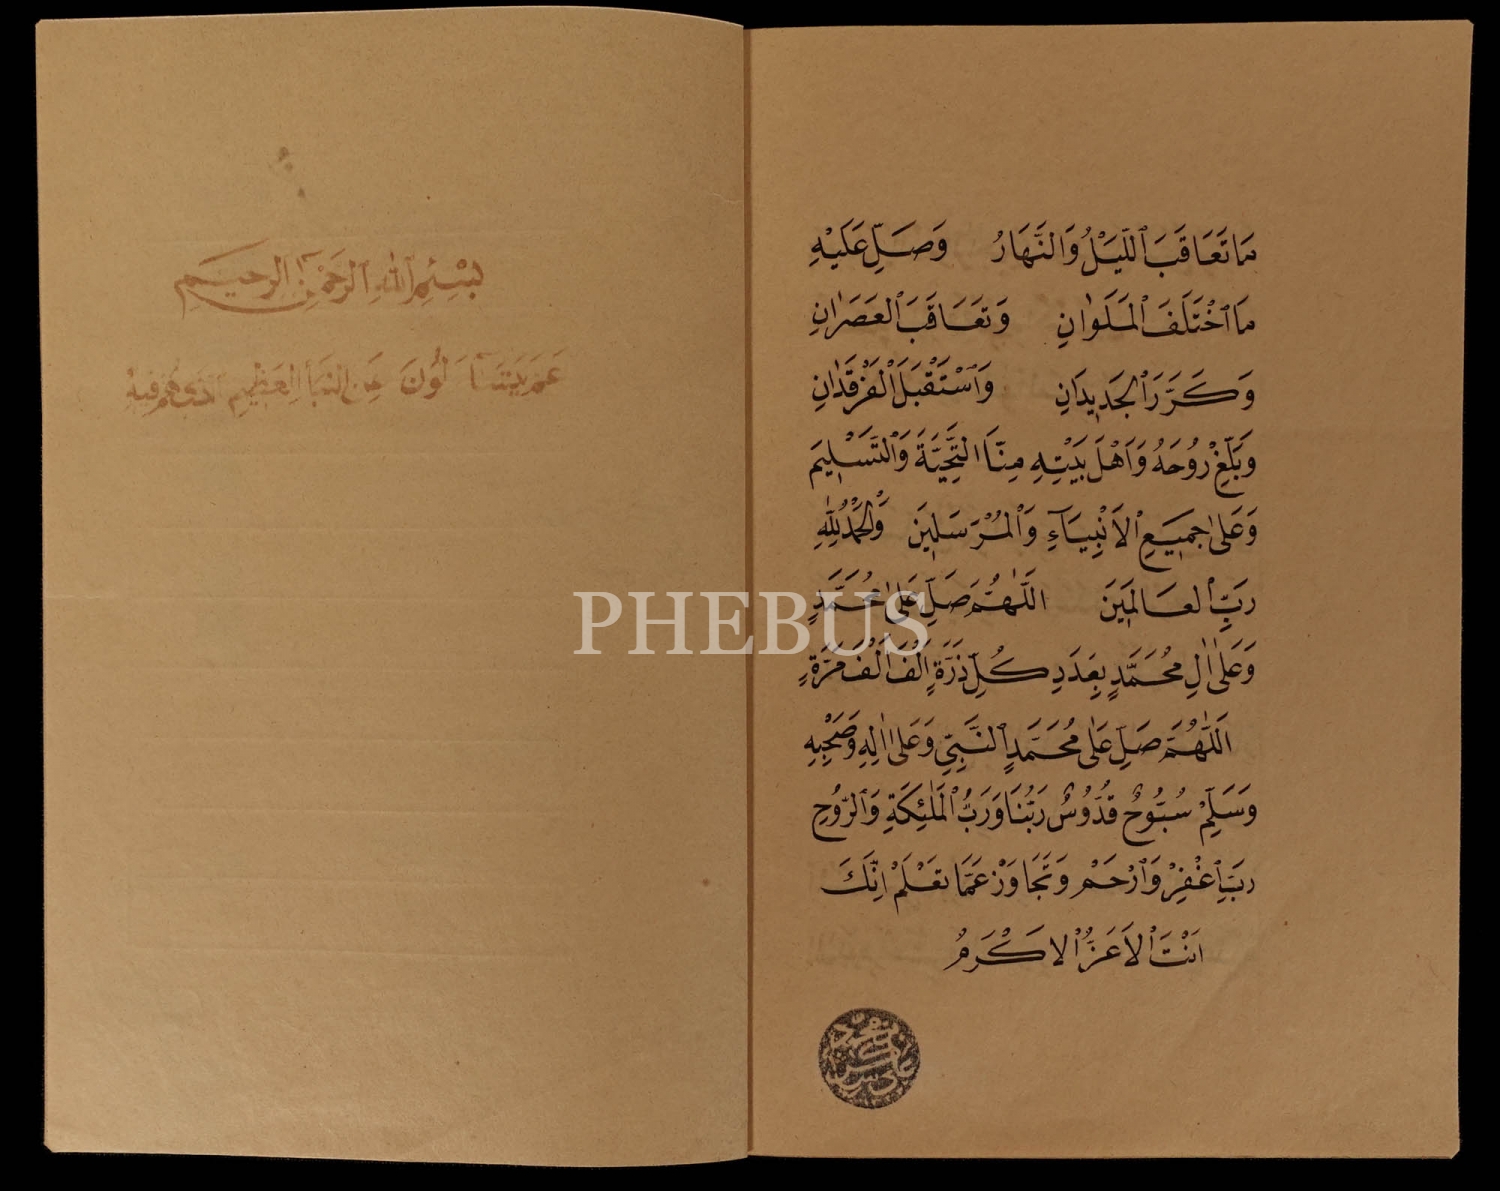 مَا تَعَاقَبَ ٱللَّيْلُ وَالنَّهَارُ وَصَلِّ عَلَيْهِ
مَا ٱخْتَلَفَ الْمَلَوَانِ وَتَعَاقَبَ الْعَصَرَانِ
وَكَرَّرَ الْجَدِيدَانِ وَٱسْتَقْبَلَ الْفَرْقَدَانِ
وَبَلِّغْ رُوحَهُ وَاَهْلَ بَيْتِهِ مِنَّا التَّحِيَّةَ وَالتَّسْلِيمَ
وَعَلٰى جَمِيعِ الْاَنْبِيَآءِ وَالْمُرْسَلِينَ وَالْحَمْدُ لِلّٰهِ
رَبِّ الْعَالَمِينَ اَللّٰهُمَّ صَلِّ عَلٰى مُحَمَّدٍ
وَعَلٰى اٰلِ مُحَمَّدٍ بِعَدَدِ كُلِّ ذَرَّةٍ اَلْفَ اَلْفَ مَرَّةٍ
اَللّٰهُمَّ صَلِّ عَلٰى مُحَمَّدٍ النَّبِيِّ وَعَلٰى اٰلِهِ وَصَحْبِهِ
وَسَلِّمْ سُبُّوحٌ قُدُّوسٌ رَبُّنَا وَرَبُّ الْمَلٰئِكَةِ وَالرُّوحِ
رَبِّ ٱغْفِرْ وَٱرْحَمْ وَتَجَاوَزْ عَمَّا تَعْلَمُ اِنَّكَ
اَنْتَ الْاَعَزُّ الْاَكْرَمُ
بِسْمِ ٱللّٰهِ ٱلرَّحْمٰنِ الرَّحِيمِ
عَمَّ يَتَسَآءَلُونَ عَنِ النَّبَأِ الْعَظِيمِ الَّذِي هُمْ فِيهِ
PHEBUS